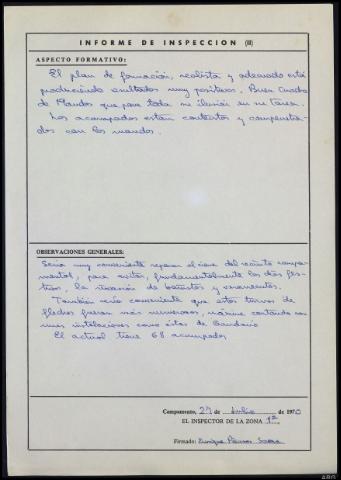 INFORME DE INSPECCION (II)
ASPECTO FORMATIVO:
El plan de formación, realista y adecuado está
produciendo resultados muy positivos. Buen Cuadro
de Mandos que pone toda su ilusión en su tarea.
Los acampados están contentos y compenetra-
dos con los mandos.
OBSERVACIONES GENERALES:
Sería muy conveniente reparar el cierre del recinto campa-
mental, para evitar, fundamentalmente los días fes-
tivos, la invasión de bañistas y
También sería conveniente que estos turnos de
flechas fueran más numerosos, máxime contando con
unas instalaciones como éstas de Gandario
El actual tiene 68 acampados
Campamento, 29 de Julio de 1970
EL INSPECTOR DE LA ZONA 1ª
Firmado: Enrique